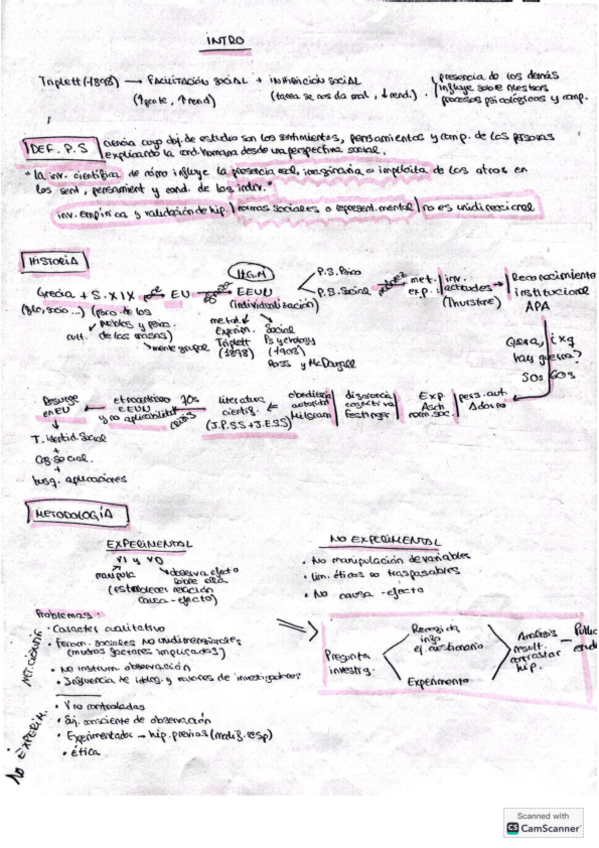 INTRO
Triplett (1898) → FACILITACIÓN SOCIAL + INHIBICIÓN SOCIAL
(↑gente, ↑rend) (tarea se nos da mal, ↓rend.)
presencia de los demás
influye sobre nuestros
procesos psicológicos y comp.
DEF. P.S
ciencia cuyo obj. de estudio son los sentimientos, pensamientos y comp. de las personas
explicando la cond. humana desde una perspectiva social.
"La inv. científica de cómo influye la presencia real, imaginaria o implícita de los otros en
los sent., pensamient y cond. de los indiv."
inv. empírica y validación de hip. | normas sociales o represent. mental | no es unidireccional
HISTORIA
H.G.M
Grecia + S. XIX → EU → EEUU
(individualización)
(psico. de los
pueblos y psico.
de las masas)
cult.
mente grupal
P.S. Psico
P.S. Social
metod. Experim.
Triplett
(1898)
Social
Psychology
(1908)
Ross y McDougall
met.
exp.
inv.
actitudes
(Thurstone)
→ Reconocimiento
institucional
APA
Guerra, ixq
hay guerra?
50s 60s
pers. aut.
Adorno
Exp.
Asch
norm. soc.
disonancia
cognitiva
Festinger
obediencia
autoridad
Milgram
literatura
científ.
(J.P.SS + J.E.SS)
70s
EEUU
y no aplicabilidad
Resurge
en EU
T. Identid. Social
+
Cog. Social
+
busq. aplicaciones
METODOLOGÍA
EXPERIMENTAL
VI y VD
manipula
observa efecto
sobre ella
(establecer relación
causa-efecto)
NO EXPERIMENTAL
• No manipulación de variables
• Lim. éticos no traspasables
• No causa-efecto
Problemas:
• Carácter cualitativo
• Fenom. sociales no unidimensionales
(muchos factores implicados)
• No instrum. observación
• Influencia de ideolog. y valores de investigadores
• V no controladas
• Suj. consciente de observación
• Experimentador → hip. previas (modif. resp)
• ética
NO EXPERIM.
Pregunta
investig.
Recogida
info
ej. cuestionario
Experimento
Análisis
result.
contrastar
hip.
Scanned with
CS CamScanner